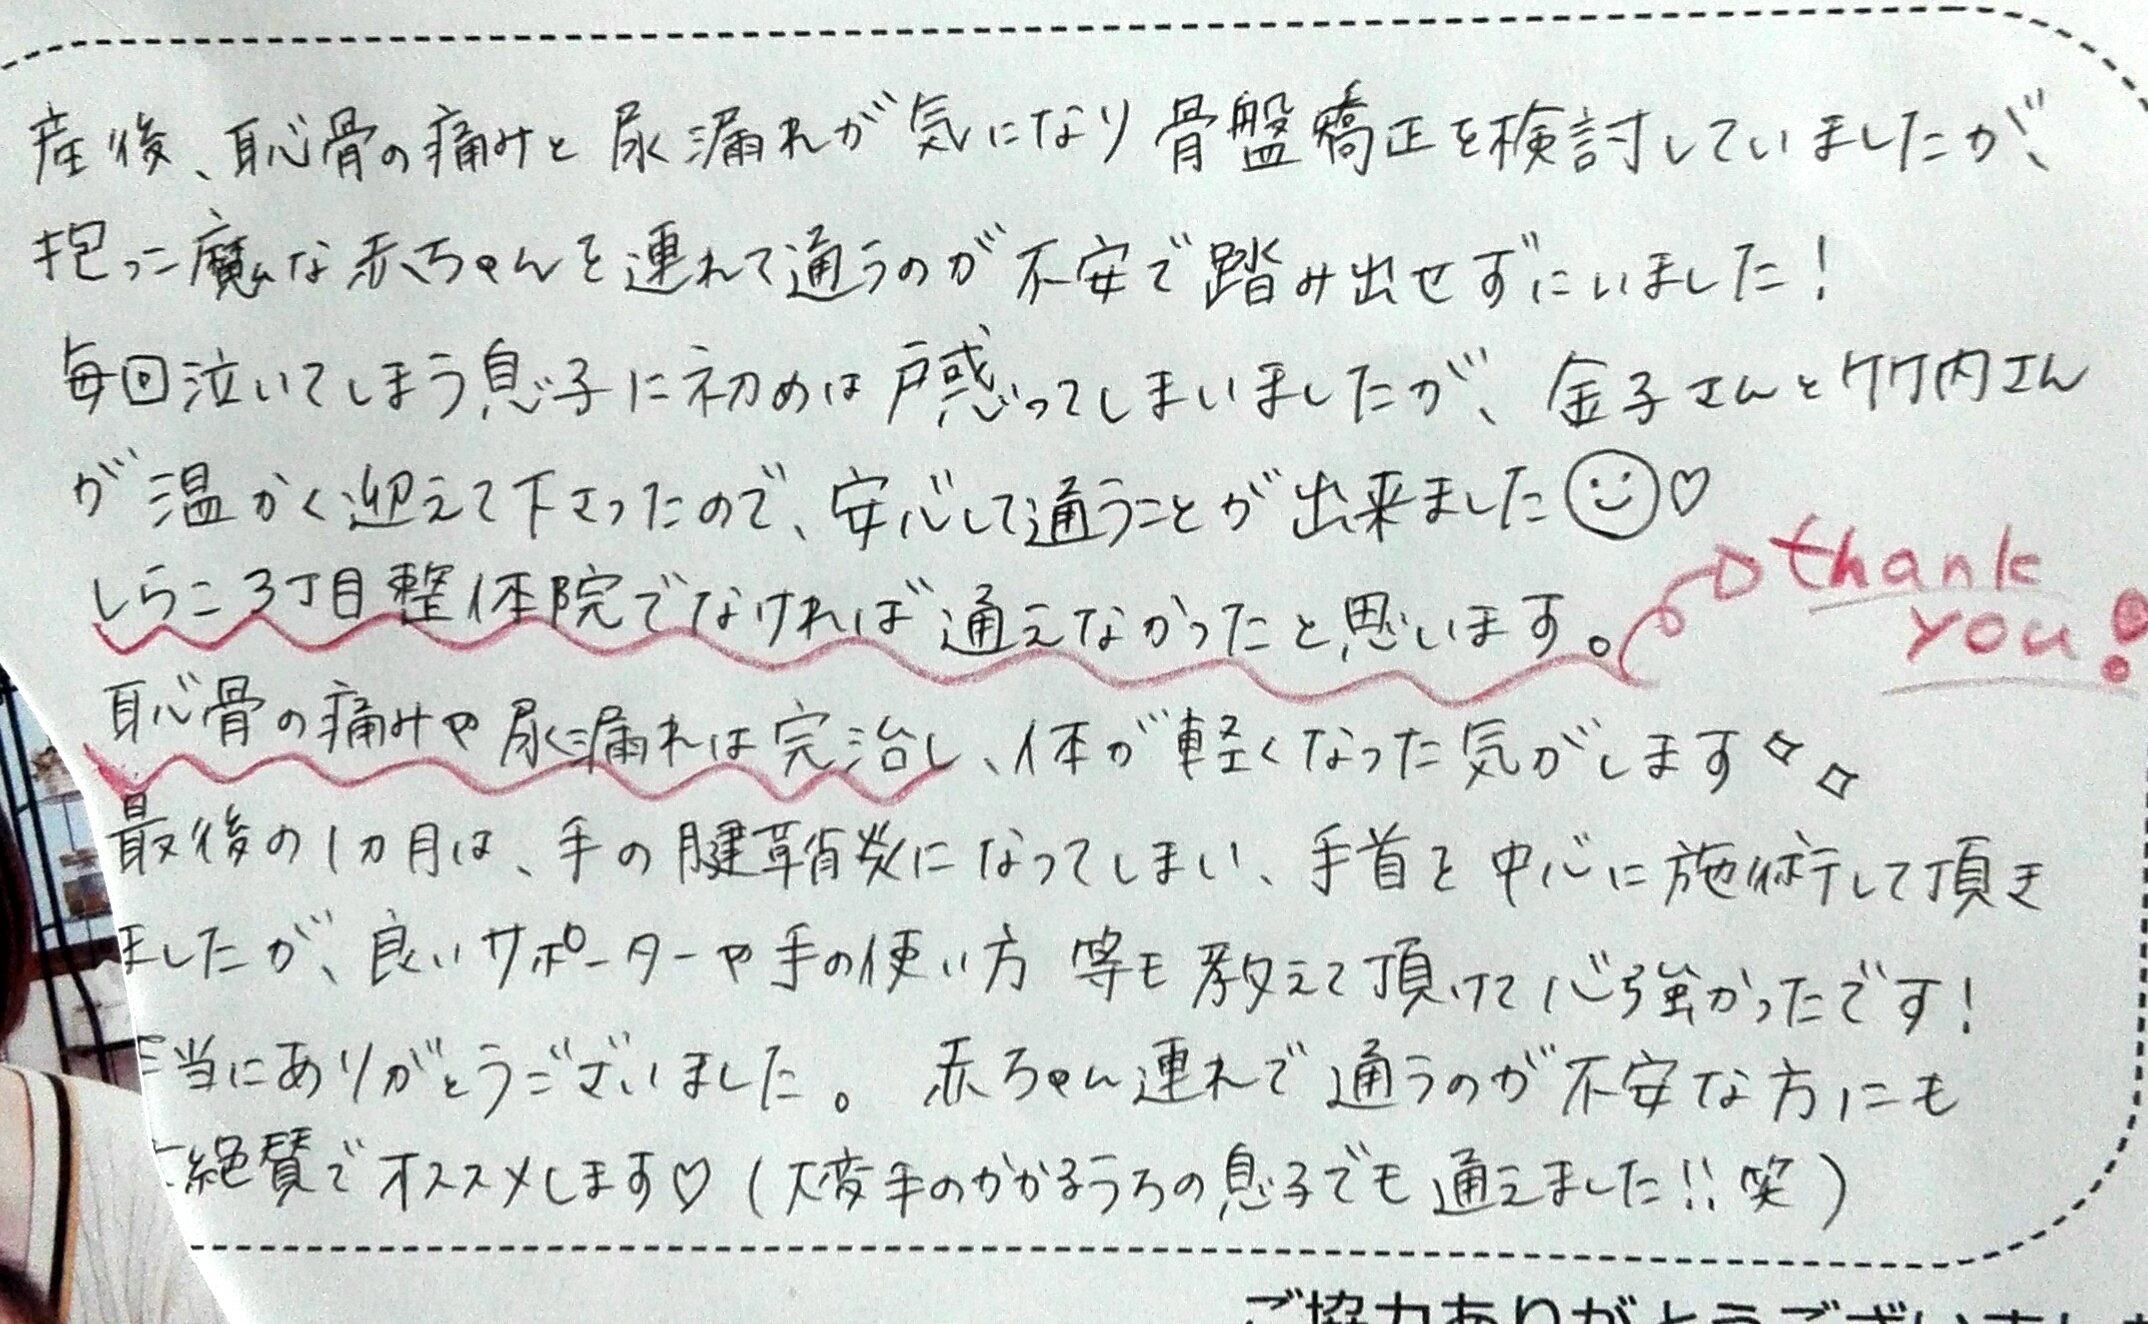 産後、恥骨の痛みと尿漏れが気になり骨盤矯正を検討していましたが、
抱っこ魔な赤ちゃんを連れて通うのが不安で踏み出せずにいました!
毎回泣いてしまう息子に初めは戸惑ってしまいましたが、金子さんと竹内さん
が温かく迎えて下さったので、安心して通うことが出来ました☺♡
しらこ3丁目整体院でなければ通えなかったと思います。
thank
you!
恥骨の痛みや尿漏れは完治し、体が軽くなった気がします✧✧
最後の1ヵ月は、手の腱鞘炎になってしまい、手首を中心に施術して頂き
ましたが、良いサポーターや手の使い方等も教えて頂けて心強かったです!
当にありがとうございました。赤ちゃん連れで通うのが不安な方にも
絶賛でオススメします♡(大変手のかかるうちの息子でも通えました!!笑)
ご協力ありがとうございまし